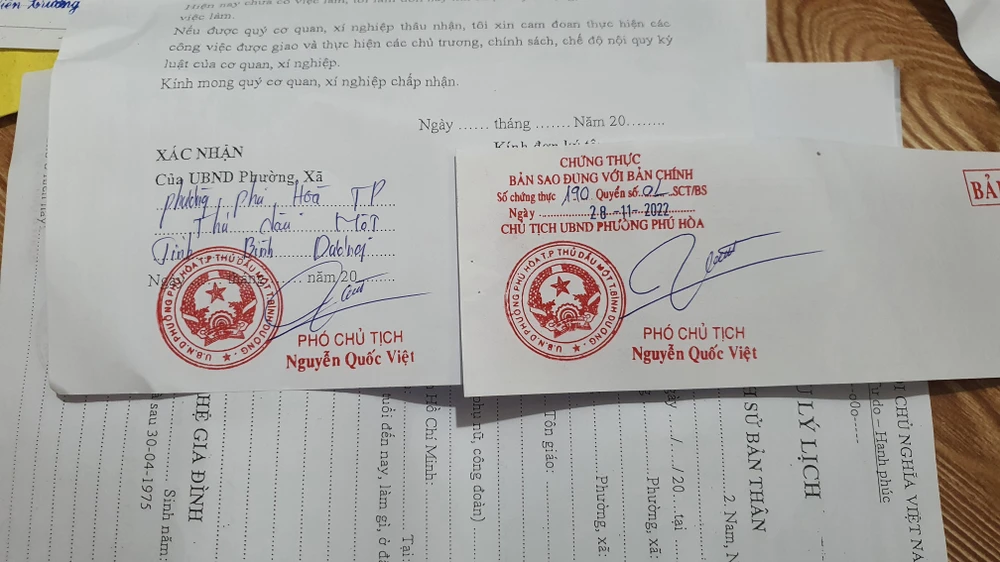 việc làm.
Nếu được quý cơ quan, xí nghiệp thâu nhận, tôi xin cam đoan thực hiện các
công việc được giao và thực hiện các chủ trương, chính sách, chế độ nội quy kỷ
luật của cơ quan, xí nghiệp.
Kính mong quý cơ quan, xí nghiệp chấp nhận.
Ngày ...... tháng ....... Năm 20........
XÁC NHẬN
Của UBND Phường, Xã
phường phú Hòa T.P
Thủ dầu MỘT
Tỉnh Bình Dương
năm 20
U.B.N.D PHƯỜNG PHÚ HÒA T.P THỦ DẦU MỘT T.BÌNH DƯƠNG
PHÓ CHỦ TỊCH
Nguyễn Quốc Việt
CHỨNG THỰC
BẢN SAO ĐÚNG VỚI BẢN CHÍNH
Số chứng thực 190 Quyển số 02 SCT/BS
Ngày 28-11-2022
CHỦ TỊCH UBND PHƯỜNG PHÚ HÒA
U.B.N.D PHƯỜNG PHÚ HÒA T.P THỦ DẦU MỘT T.BÌNH DƯƠNG
PHÓ CHỦ TỊCH
Nguyễn Quốc Việt
CHỦ NGHĨA VIỆT NA
do – Hạnh phúc
-o0o----
LÝ LỊCH
SỬ BẢN THÂN
2. Nam, N
/..../20
tại
Phường, xã:
Phường, xã:
Tôn giáo:
phụ nữ, công đoàn)
Tại:
Hồ Chí Minh:
tuổi đến nay, làm gì, ở đ
HỆ GIA ĐÌNH
sau 30-04-1975
Sinh năm: